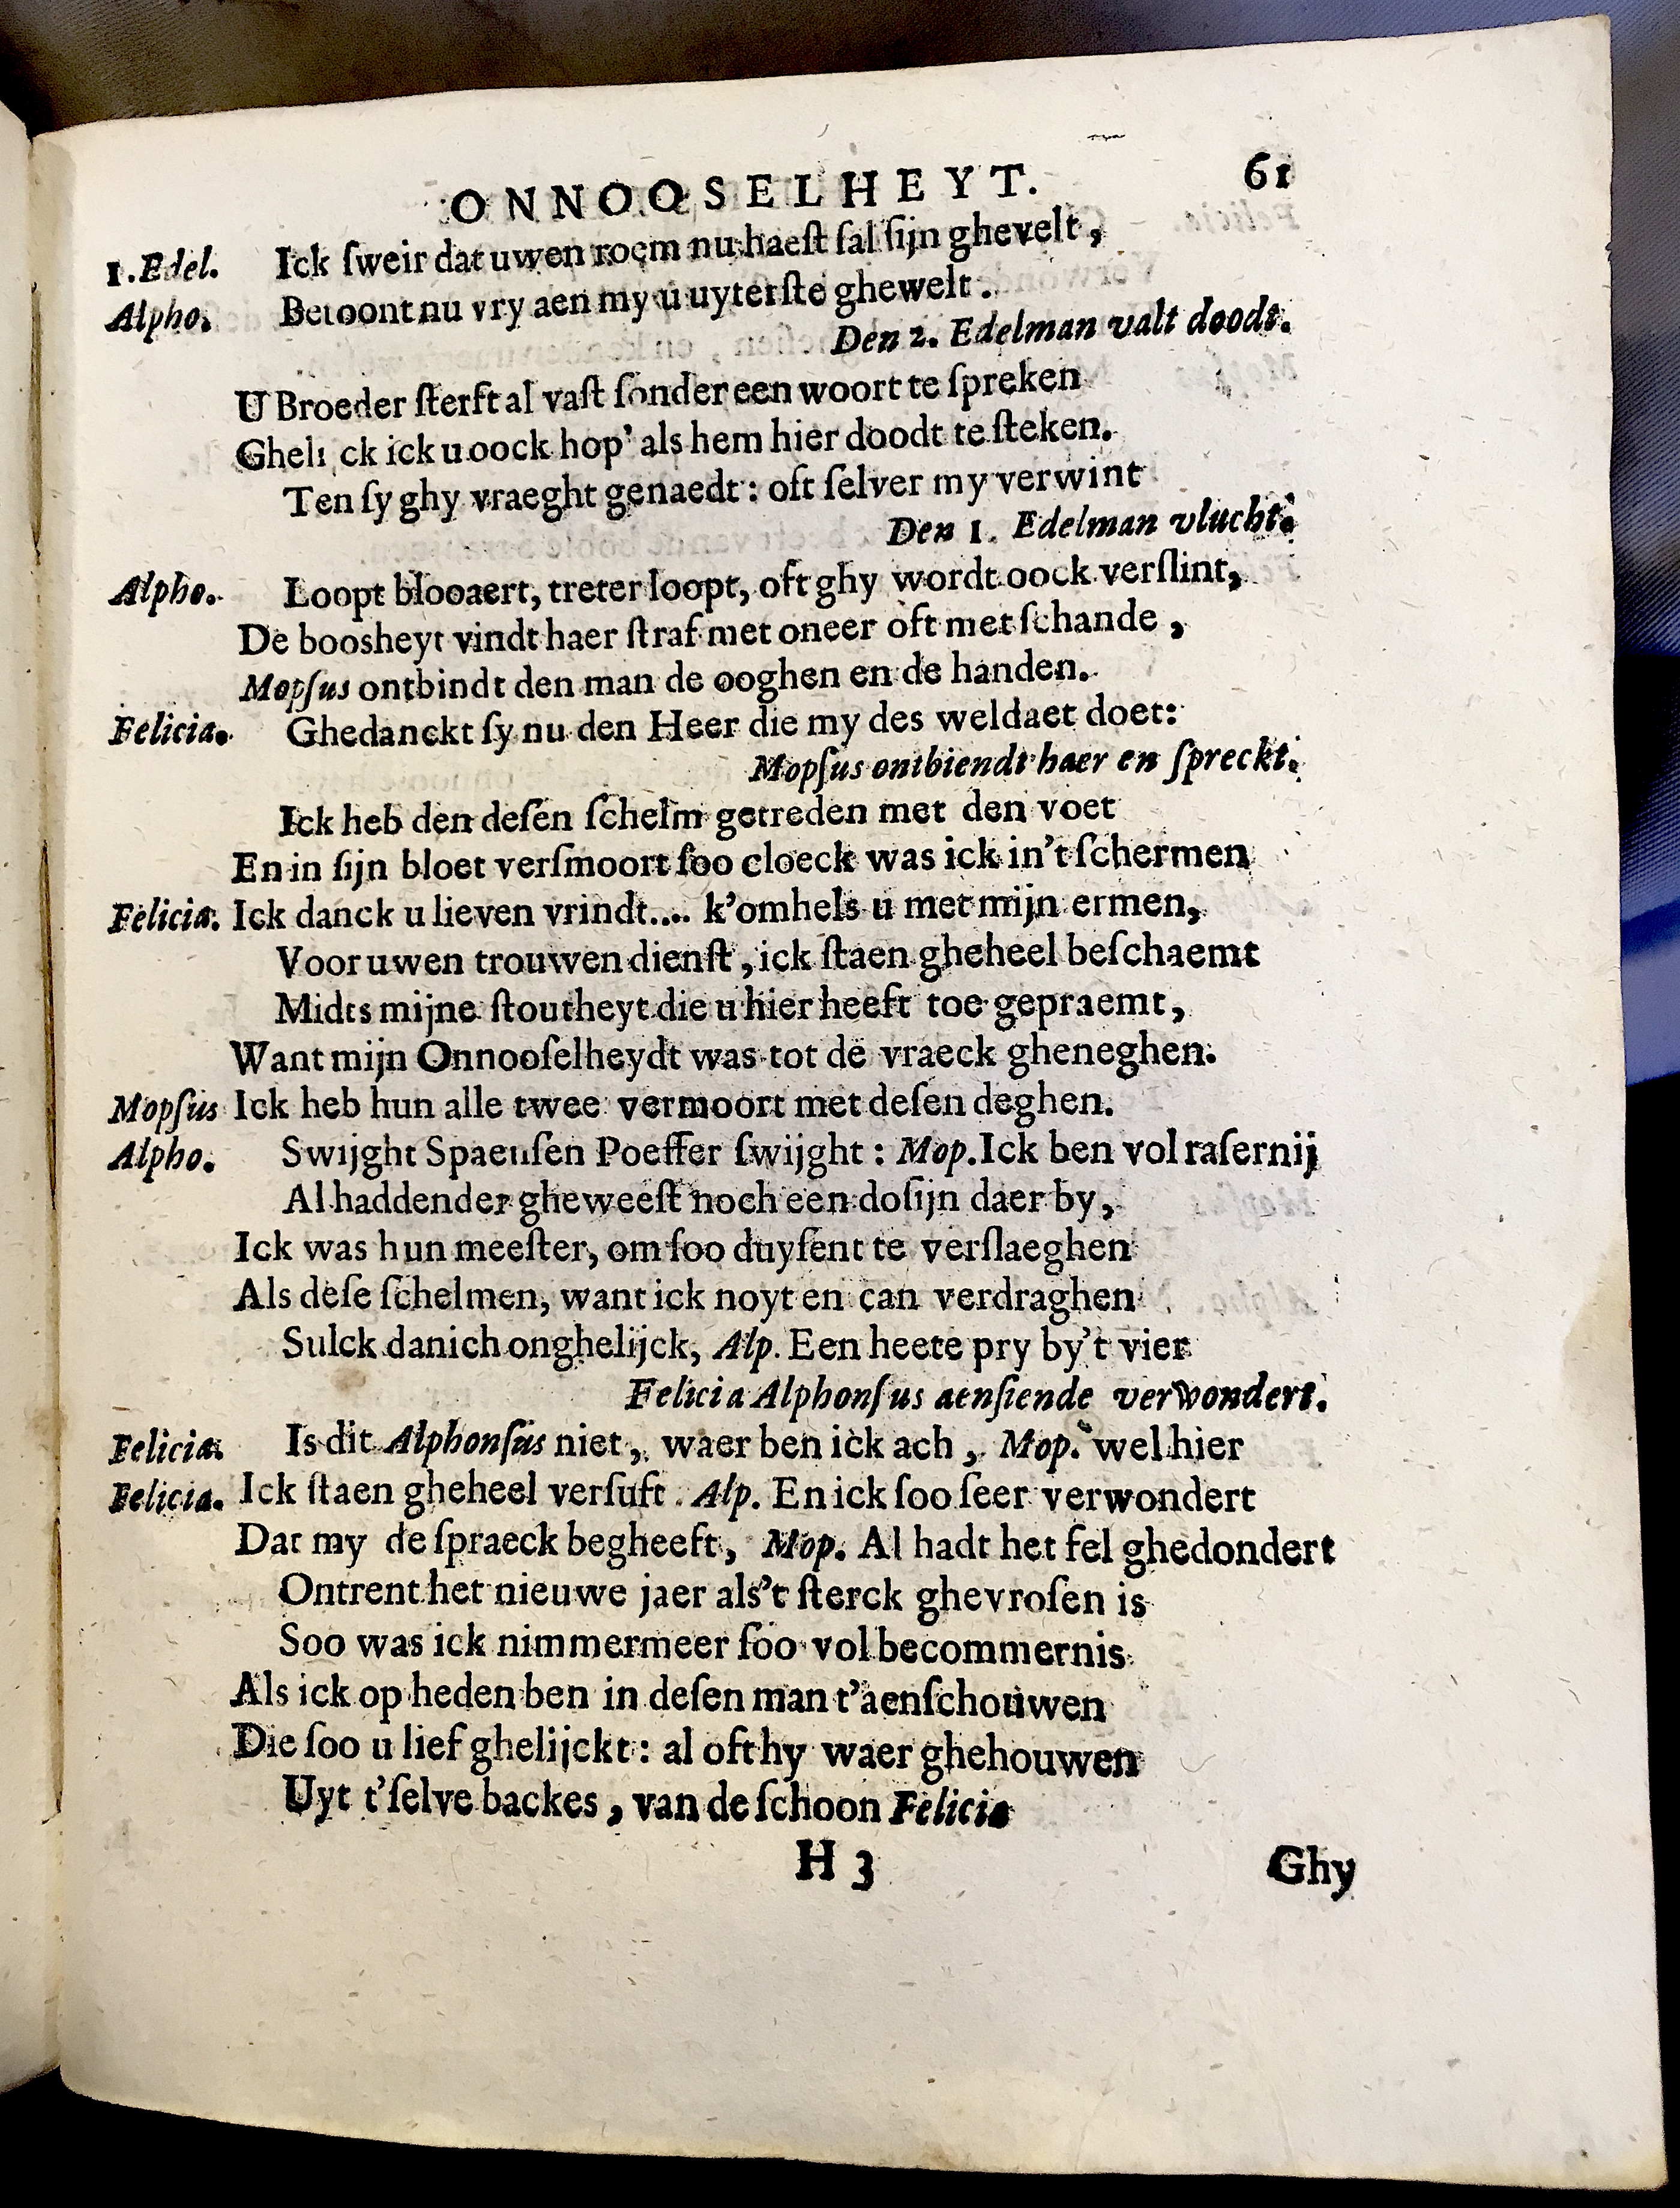 ONNOOSELHEYT. 61
1.Edel. Ick ſweir dat uwen roem nu haeſt ſal ſijn ghevelt,
Alpho. Betoont nu vry aen my u uyterſte ghewelt.
Den 2. Edelman valt doodt.
U Broeder ſterft al vaſt ſonder een woort te ſpreken
Ghelı ck ick u oock hop' als hem hier doodt te ſteken.
Ten ſy ghy vraeght genaedt: oft ſelver my verwint
Den 1. Edelman vlucht.
Alpho. Loopt blooaert, treter loopt, oft ghy wordt oock verſlint,
De boosheyt vindt haer ſtraf met oneer oft met ſchande,
Mopſus ontbindt den man de ooghen en de handen.
Felicia. Ghedanckt ſy nu den Heer die my des weldaet doet:
Mopſus ontbiendt haer en ſpreckt.
Ick heb den deſen ſchelm getreden met den voet
En in ſijn bloet verſmoort ſoo cloeck was ick in't ſchermen
Felicia. Ick danck u lieven vrindt.... k'omhels u met mijn ermen,
Voor uwen trouwen dienſt, ick ſtaen gheheel beſchaemt
Midts mijne ſtoutheyt die u hier heeft toe gepraemt,
Want mijn Onnooſelheydt was tot de vraeck gheneghen.
Mopſus Ick heb hun alle twee vermoort met deſen deghen.
Alpho. Swijght Spaenſen Poeffer ſwijght: Mop. Ick ben vol raſernij
Al haddender gheweeſt noch een doſijn daer by,
Ick was hun meeſter, om ſoo duyſent te verſlaeghen
Als deſe ſchelmen, want ick noyt en can verdraghen
Sulck danich onghelijck, Alp. Een heete pry by't vier
Felicia Alphonſus aenſiende verwondert.
Felicia. Is dit Alphonſus niet, waer ben ick ach, Mop. wel hier
Felicia. Ick ſtaen gheheel verſuft. Alp. En ick ſoo ſeer verwondert
Dat my de ſpraeck begheeft, Mop. Al hadt het fel ghedondert
Ontrent het nieuwe jaer als't ſterck ghevroſen is
Soo was ick nimmermeer ſoo vol becommernis
Als ick op heden ben in deſen man t'aenſchouwen
Die ſoo u lief ghelijckt: al oft hy waer ghehouwen
Uyt t'ſelve backes, van de ſchoon Felicia
H 3 Ghy